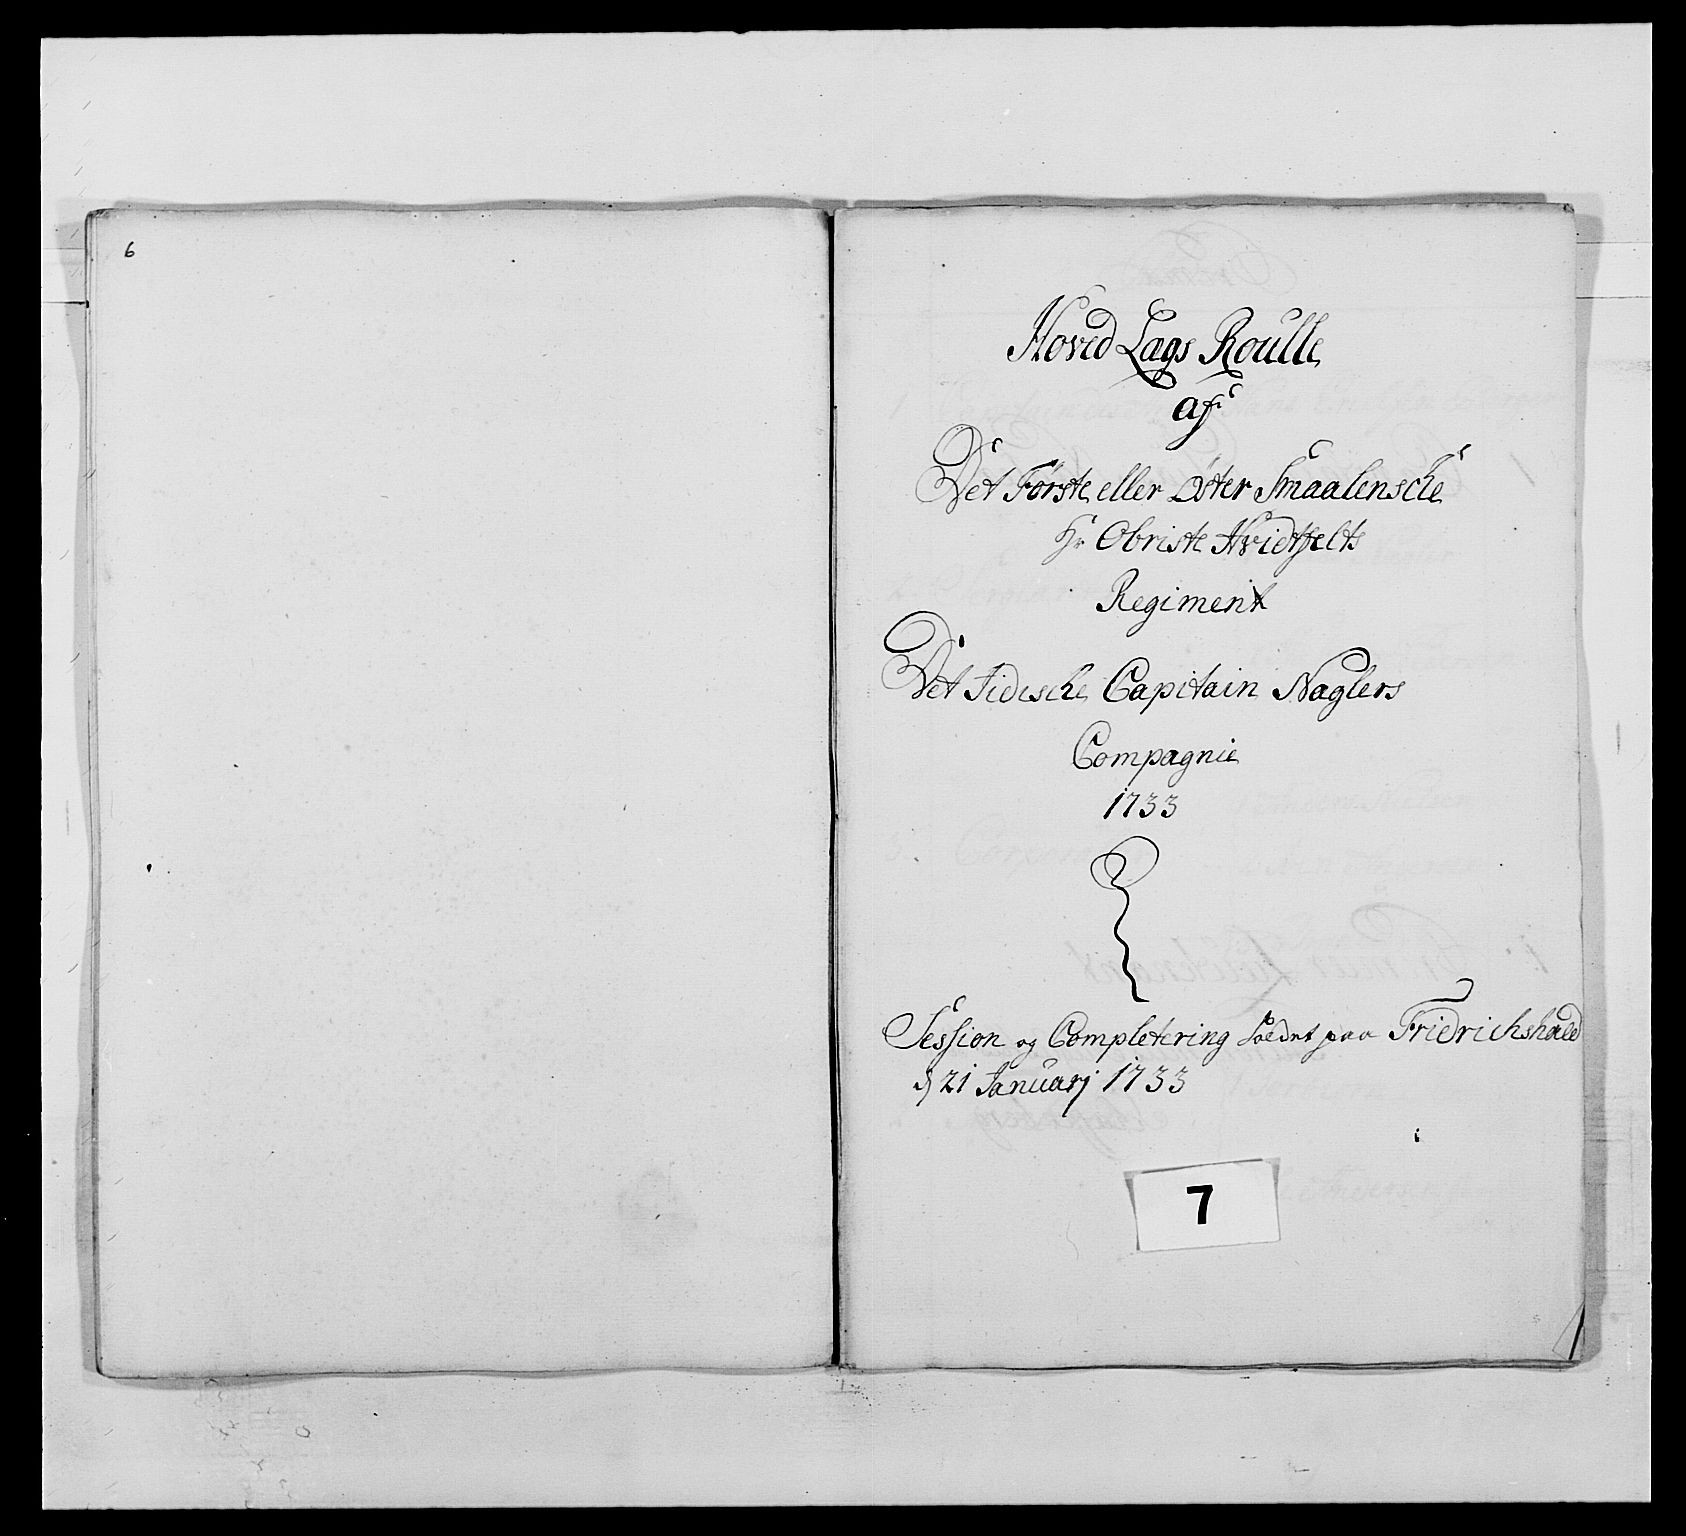 6
Hoved Lags Roulle
af
Det Første eller Øster Smaalensche
Hr Obriste Hvidtfelts
Regiment
Det Idische Capitain Naglers
Compagnie
1733
Session og Completering holdet paa Fridrichshald
d 21 Januarj 1733
7